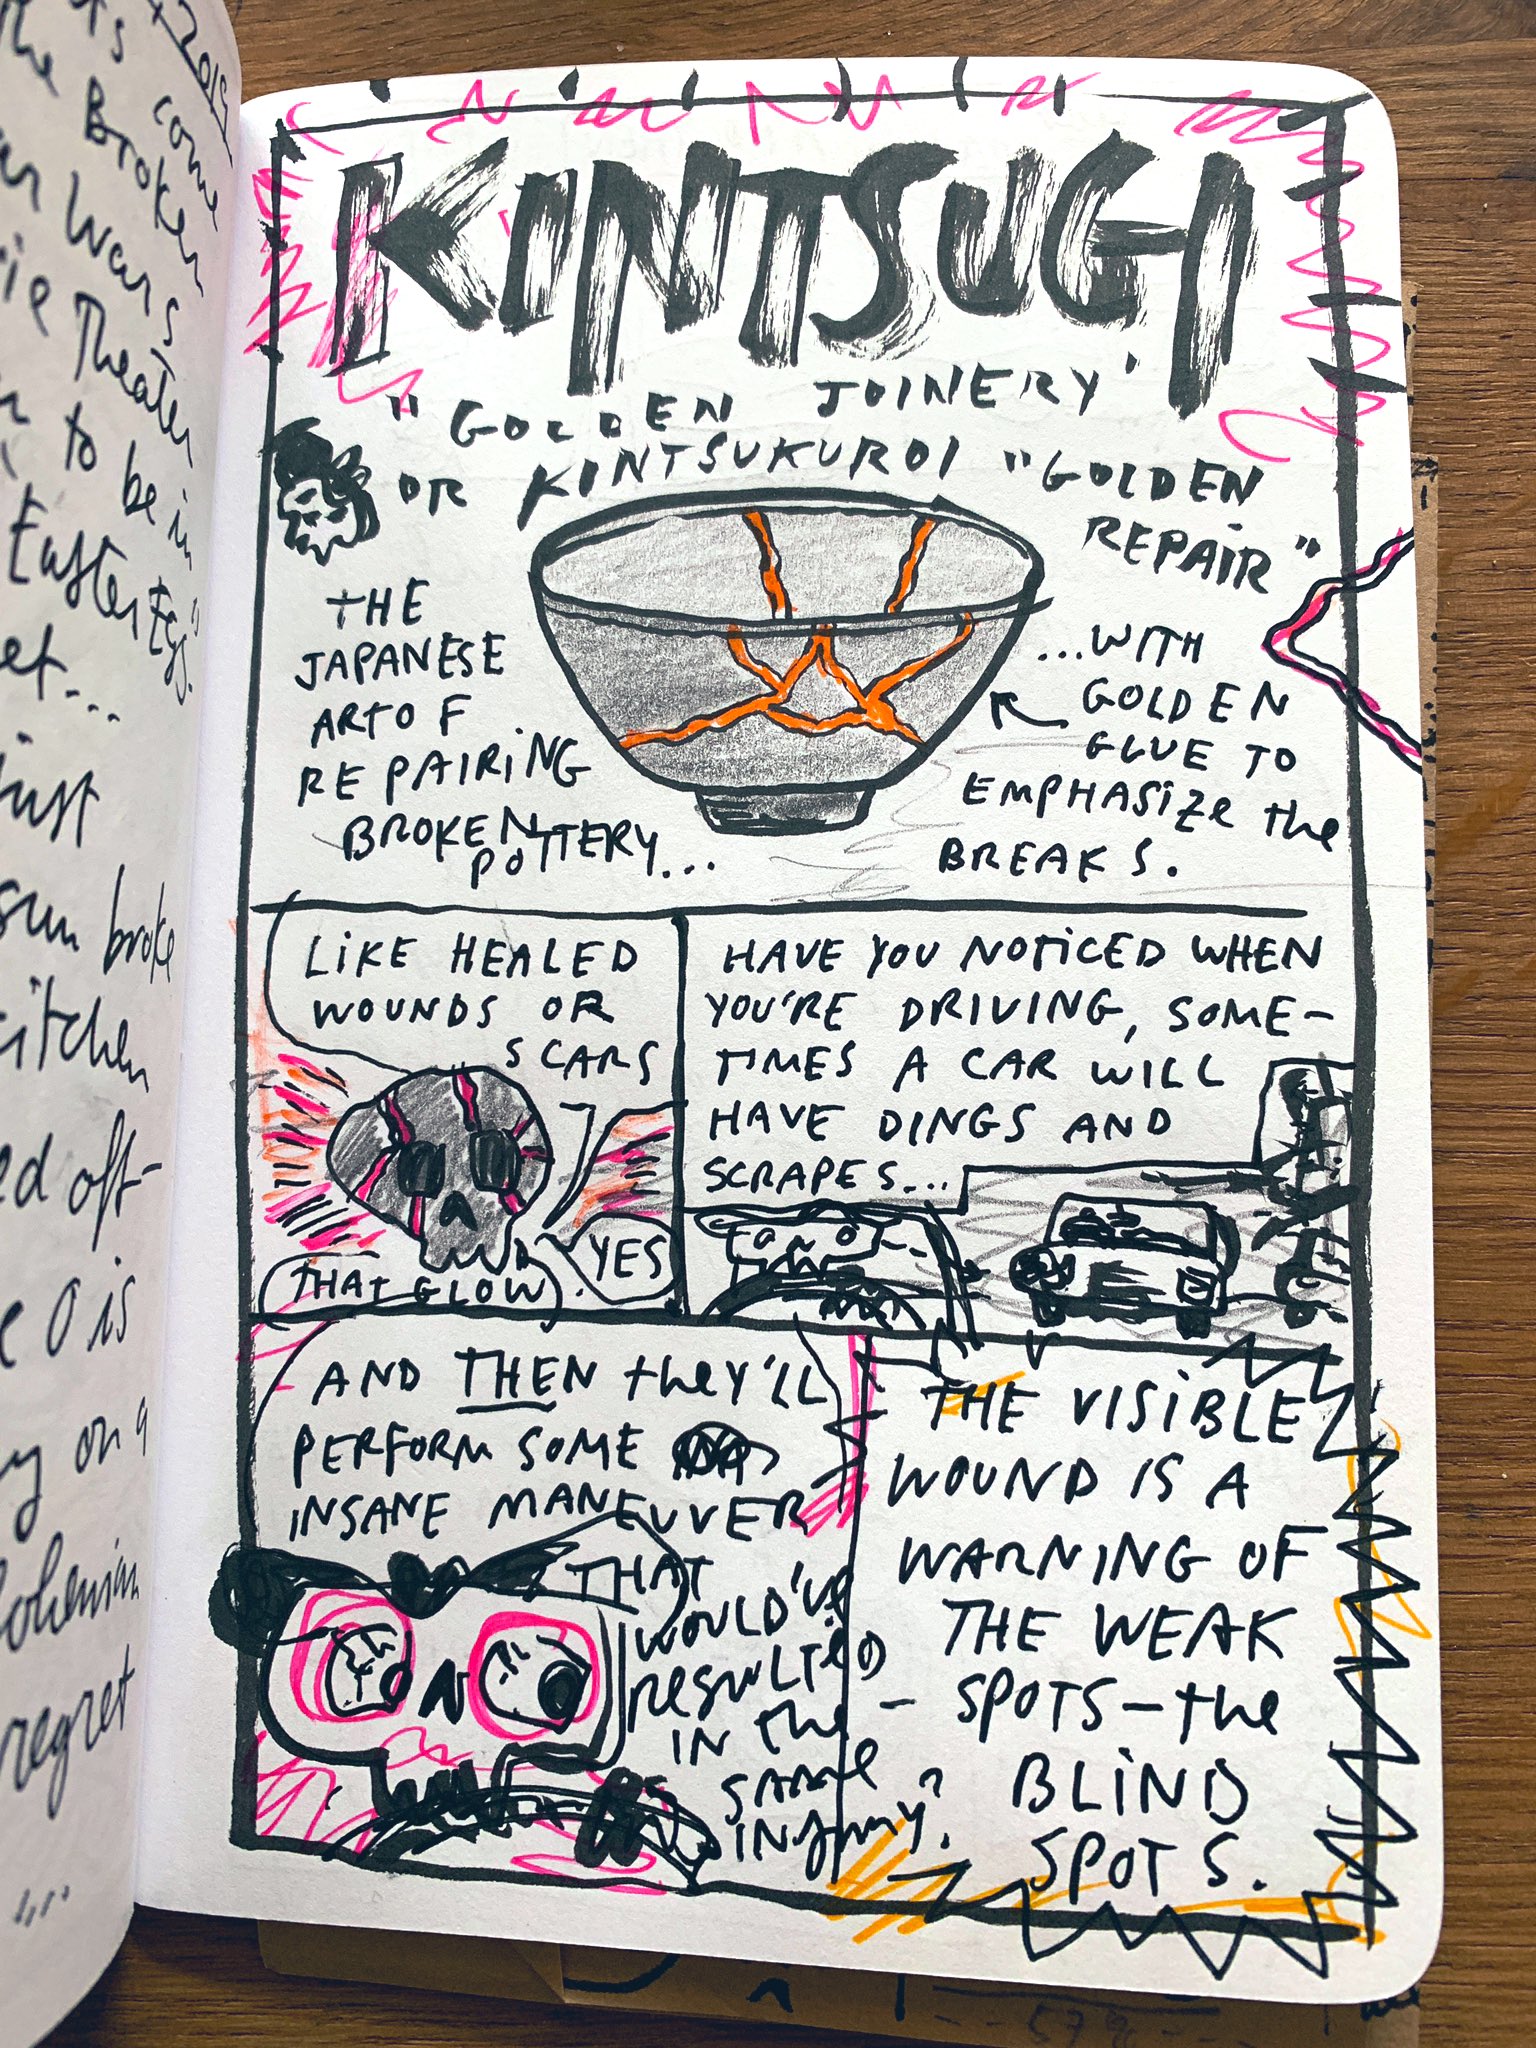 2019
come
the Broken
Wars
Theater
to be in
Easter Eggs.
just
broke
kitchen
off-
O is
on a
regret
KINTSUGI
"GOLDEN JOINERY'
OR KINTSUKUROI "GOLDEN
REPAIR"
THE
JAPANESE
ART OF
REPAIRING
BROKEN
POTTERY...
...WITH
GOLDEN
GLUE TO
EMPHASIZE the
BREAKS.
LIKE HEALED
WOUNDS OR
SCARS
THAT GLOW.
YES
HAVE YOU NOTICED WHEN
YOU'RE DRIVING, SOME-
TIMES A CAR WILL
HAVE DINGS AND
SCRAPES...
AND THEN they'LL
PERFORM SOME
INSANE MANEUVER
THAT
WOULD'VE
RESULTED
IN the
SAME
INJURY?
THE VISIBLE
WOUND IS A
WARNING OF
THE WEAK
SPOTS—the
BLIND
SPOTS.
57%